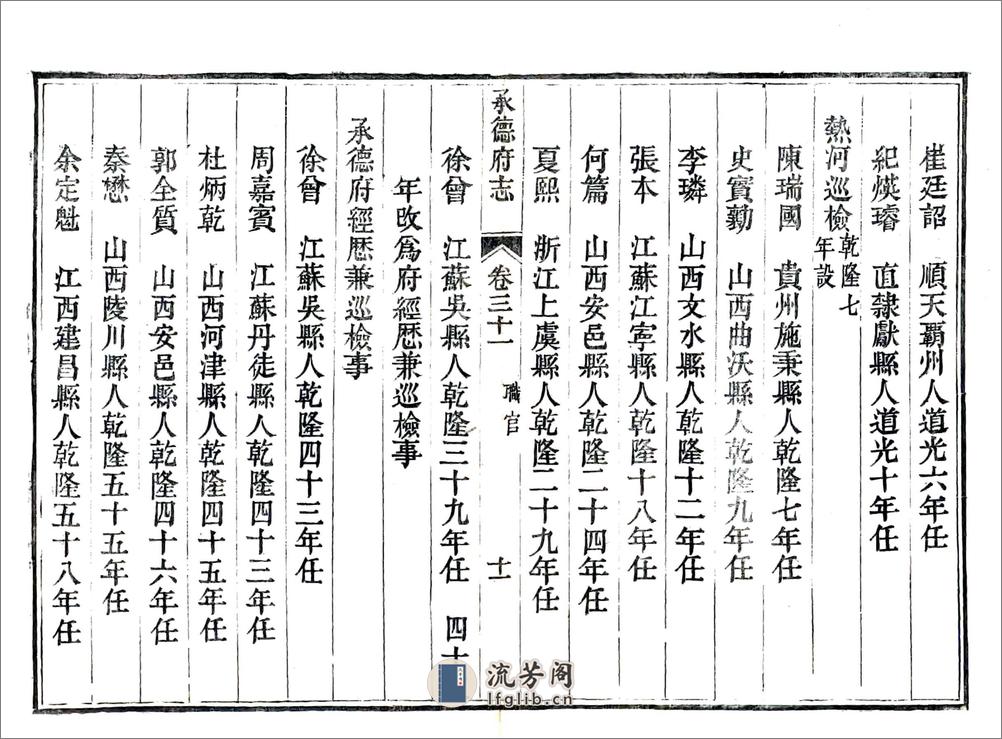 崔廷詔 順天霸州人道光六年任
紀煐璿 直隸獻縣人道光十年任
熱河巡檢乾隆七年設
陳瑞國 貴州施秉縣人乾隆七年任
史實勤 山西曲沃縣人乾隆九年任
李璘 山西文水縣人乾隆十二年任
張本 江蘇江寧縣人乾隆十八年任
何篇 山西安邑縣人乾隆二十四年任
夏熙 浙江上虞縣人乾隆二十九年任
承德府志 卷三十一 職官 十一
徐曾 江蘇吳縣人乾隆三十九年任 四十
年改為府經歷兼巡檢事
承德府經歷兼巡檢事
徐曾 江蘇吳縣人乾隆四十三年任
周嘉賓 江蘇丹徒縣人乾隆四十三年任
杜炳乾 山西河津縣人乾隆四十五年任
郭全質 山西安邑縣人乾隆四十六年任
秦懋 山西陵川縣人乾隆五十五年任
余定魁 江西建昌縣人乾隆五十八年任
流芳阁
lfglib.cn